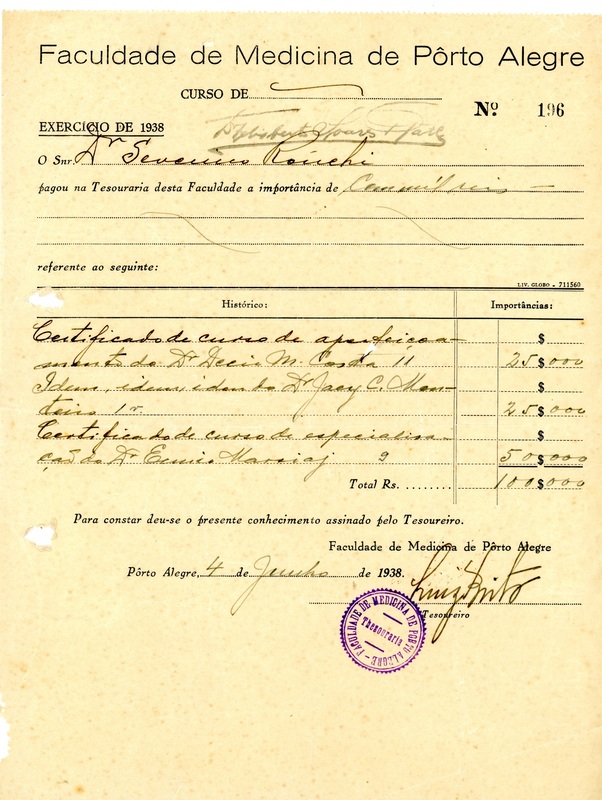 Faculdade de Medicina de Pôrto Alegre
CURSO DE
Nº 196
EXERCÍCIO DE 1938
O Snr. Dr Severino Ronchi
pagou na Tesouraria desta Faculdade a importância de Cem mil reis
referente ao seguinte:
LIV. GLOBO - 711560
Histórico: Importâncias:
Certificado de curso de aperfeiçoa- $
mento do Dr Decio M. Costa 11 25$000
Idem, idem, idem do Dr Jacy C. Mon- $
teiro 1 25$000
Certificado de curso de especialisa- $
ção do Dr Ennio Marsiaj 9 50$000
Total Rs. ........ 100$000
Para constar deu-se o presente conhecimento assinado pelo Tesoureiro.
Faculdade de Medicina de Pôrto Alegre
Pôrto Alegre, 4 de Junho de 1938.
Luiz Brito
Tesoureiro
FACULDADE DE MEDICINA DE PORTO ALEGRE
Thesouraria